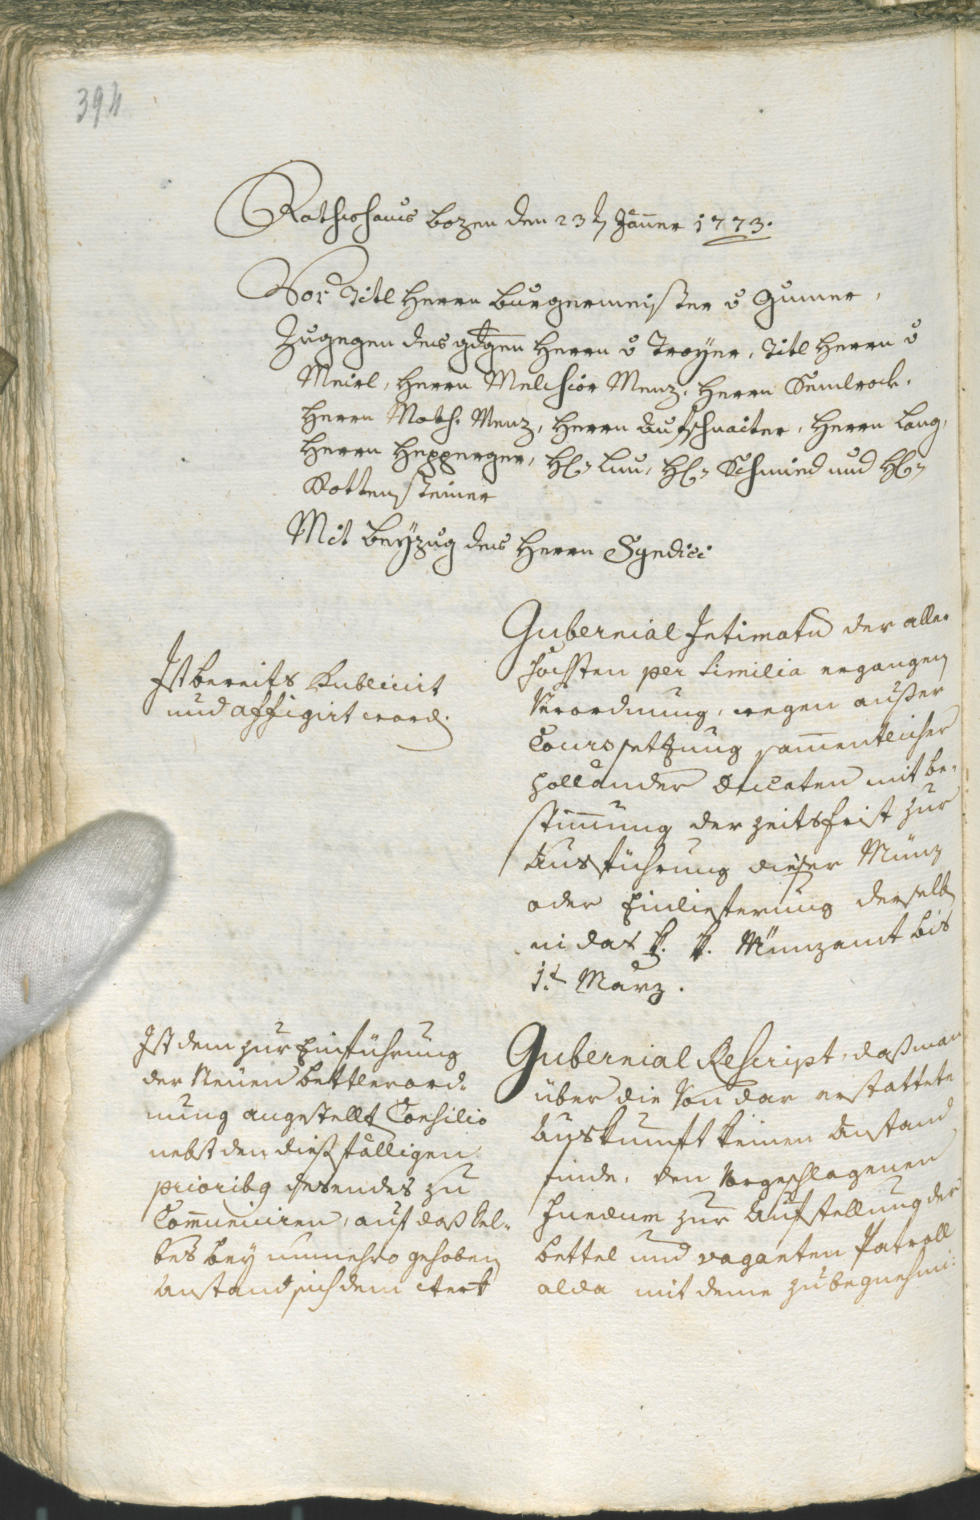 394
Rathshaus Bozen den 23ten Jäner 1773.
Vor Titl Herrn Burgermeister v Gumer,
Zugegen des gdgen Herrn v Troyer, Titl Herrn v
Meirl, Herrn Melchior Menz, Herrn Kemlrock,
Herrn Math. Menz, Herrn Aufschnaiter, Herrn Lang,
Herrn Hepperger, H: Luu, H: Schmied und H:
Rottensteiner
Mit Beÿzug des Herrn Syndici
Ist bereits Publicirt
und affigirt word.
Gubernial Intimatn der aller
höchsten per Similia ergangen
Verordnung, wegen ausser
Courssetzung sammentlicher
Holländer Ducaten mit be-
stimmung der Zeitsfrist zur
Ausführung dieser Münz
oder Einlieferung derselbn
in das k. k. Münzamt bis
1t März.
Ist dem zur Einführung
der Neuen Bettlerord-
nung angestellt Consilio
nebst den diesfälligen
prioribg desendes zu
Communiciren, auf daß sel-
bes bey nunmehro gehoben
Anstand sich dem
Gubernial Rescript, daß man
über die Von dar erstattete
Auskunft keinen Anstand
finde, den Vorgeschlagenen
zur Aufstellung der
Bettel und vaganten Patroll
alda mit deme zubegnehmi-